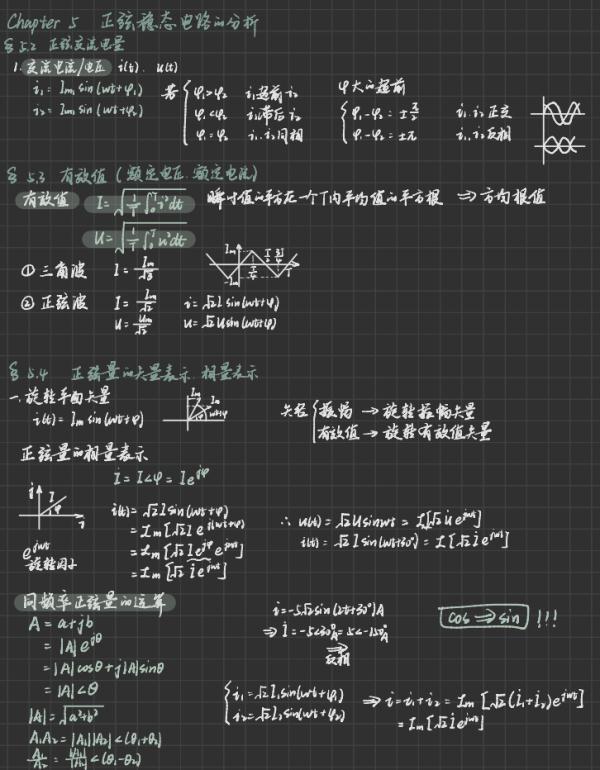 Chapter 5 正弦稳态电路的分析
§5.2 正弦交流电量
1. 交流电流/电压 i(t). u(t)
i₁ = Iₘ₁ sin(ωt+φ₁)
i₂ = Iₘ₂ sin(ωt+φ₂)
若 { φ₁>φ₂ i₁超前i₂
φ₁<φ₂ i₁滞后i₂
φ₁=φ₂ i₁.i₂同相
φ大的超前
{ φ₁-φ₂ = ±π/2 i₁.i₂正交
φ₁-φ₂ = ±π i₁.i₂反相
§5.3 有效值(额定电压.额定电流)
有效值 I=√(1/T ∫₀ᵀ i²dt) 瞬时值的平方在一个T内平均值的平方根 ⇒ 方均根值
U=√(1/T ∫₀ᵀ u²dt)
① 三角波 I = Iₘ/√3
② 正弦波 I = Iₘ/√2 i=√2 I sin(ωt+φ)
U = Uₘ/√2 u=√2 U sin(ωt+φ)
§5.4 正弦量的矢量表示.相量表示
一.旋转平面矢量
i(t) = Iₘ sin(ωt+φ)
矢径 { 振幅 → 旋转振幅矢量
有效值 → 旋转有效值矢量
正弦量的相量表示
İ = I∠φ = Ie^{jφ}
i(t) = √2 I sin(ωt+φ)
= Im[√2 I e^{j(ωt+φ)}]
= Im[√2 I e^{jφ} e^{jωt}]
= Im[√2 İ e^{jωt}]
e^{jωt}
旋转因子
∴ u(t) = √2 U sinωt = Im[√2 U̇ e^{jωt}]
i(t) = √2 I sin(ωt+30°) = Im[√2 İ e^{jωt}]
同频率正弦量的运算
A = a+jb
= |A|e^{jθ}
= |A|cosθ+j|A|sinθ
= |A|∠θ
|A| = √(a²+b²)
A₁A₂ = |A₁||A₂|∠(θ₁+θ₂)
A₁/A₂ = |A₁|/|A₂| ∠(θ₁-θ₂)
i=-5√2 sin(2t+30°)A
⇒ İ=-5∠30°A=5∠-150°A
⇒
反相
cos ⇒ sin !!!
{ i₁=√2 I₁ sin(ωt+φ₁)
i₂=√2 I₂ sin(ωt+φ₂)
⇒ i=i₁+i₂ = Im[√2(İ₁+İ₂)e^{jωt}]
= Im[√2 İ e^{jωt}]